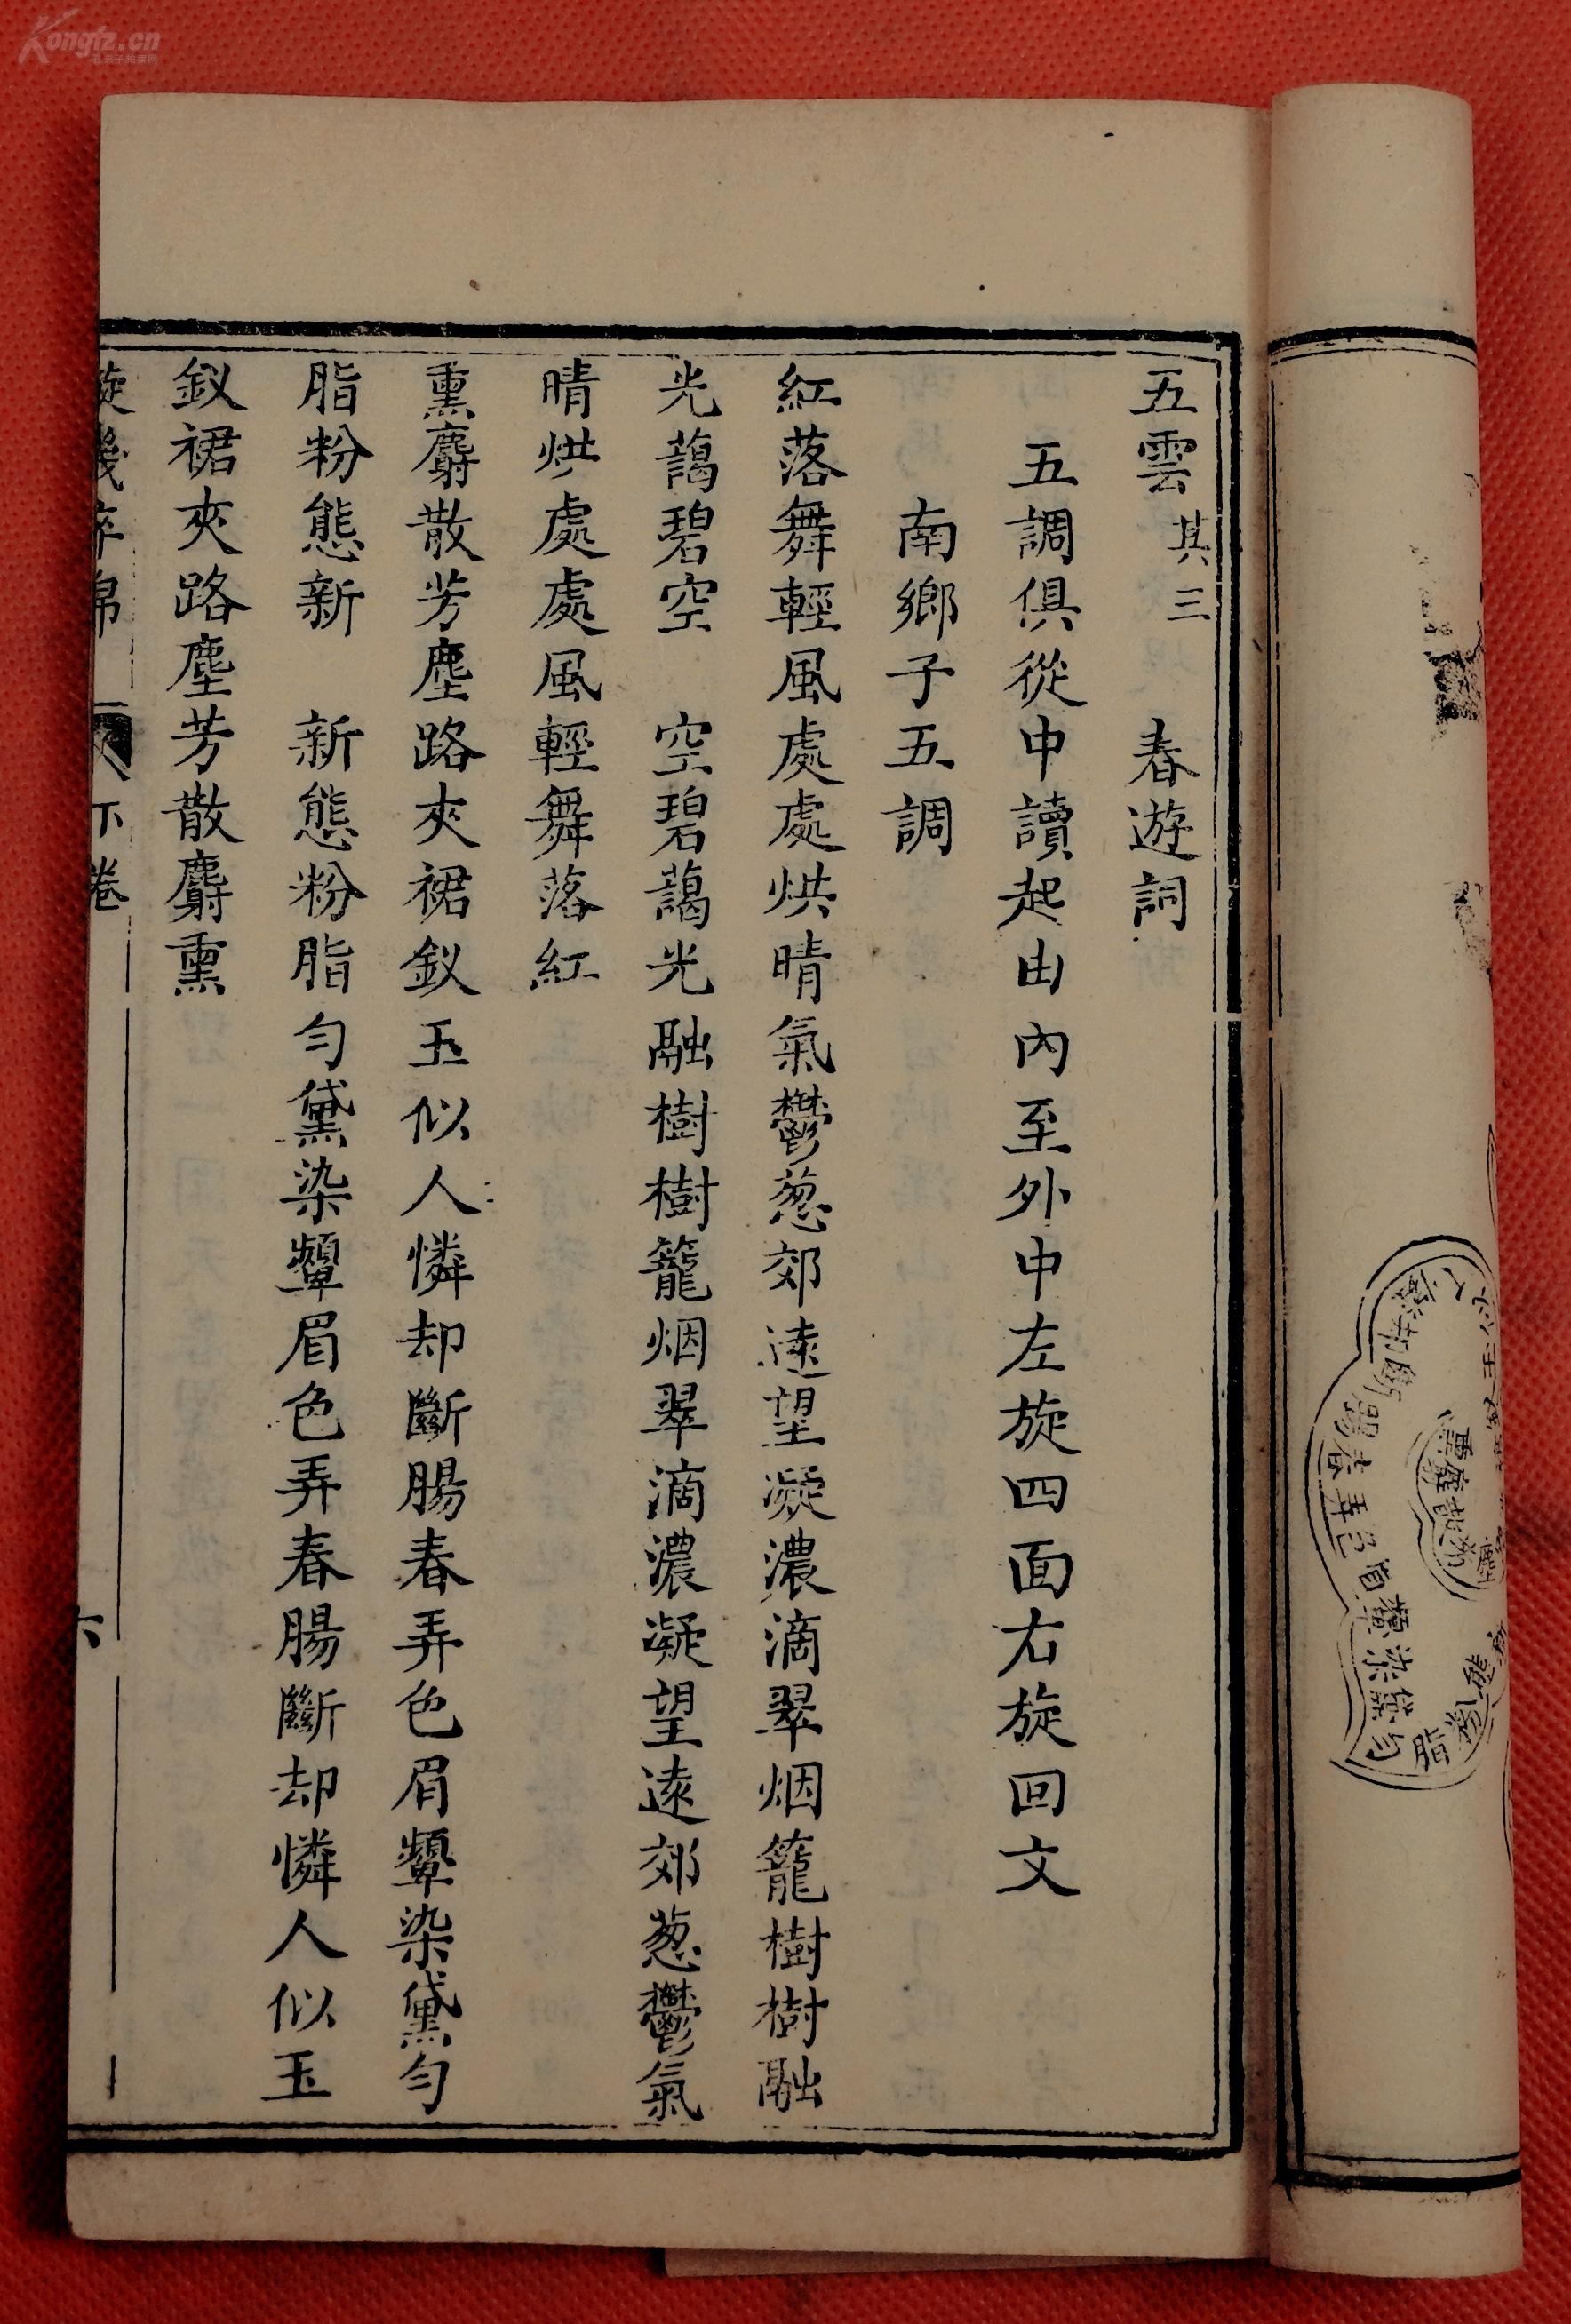 五雲其三　春遊詞
五調俱從中讀起由內至外中左旋四面右旋回文
南鄉子五調
紅落舞輕風處處烘晴氣鬱葱郊遠望凝濃滴翠烟籠樹樹融
光藹碧空　空碧藹光融樹樹籠烟翠滴濃凝望遠郊葱鬱氣
晴烘處處風輕舞落紅
熏麝散芳塵路夾裙釵玉似人憐却斷腸春弄色眉顰染黛勻
脂粉態新　新態粉脂勻黛染顰眉色弄春腸斷却憐人似玉
釵裙夾路塵芳散麝熏
下卷
六
Kongfz.cn